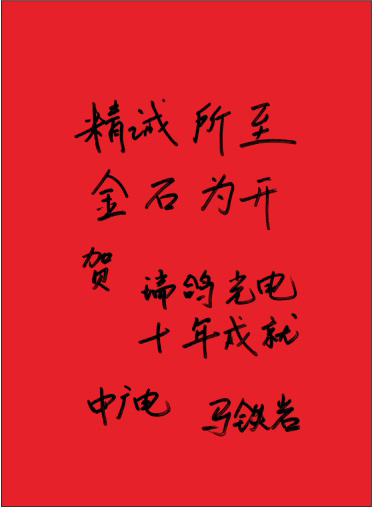 精诚所至
金石为开
贺
瑞鸽光电
十年成就
中广电 马铁岩